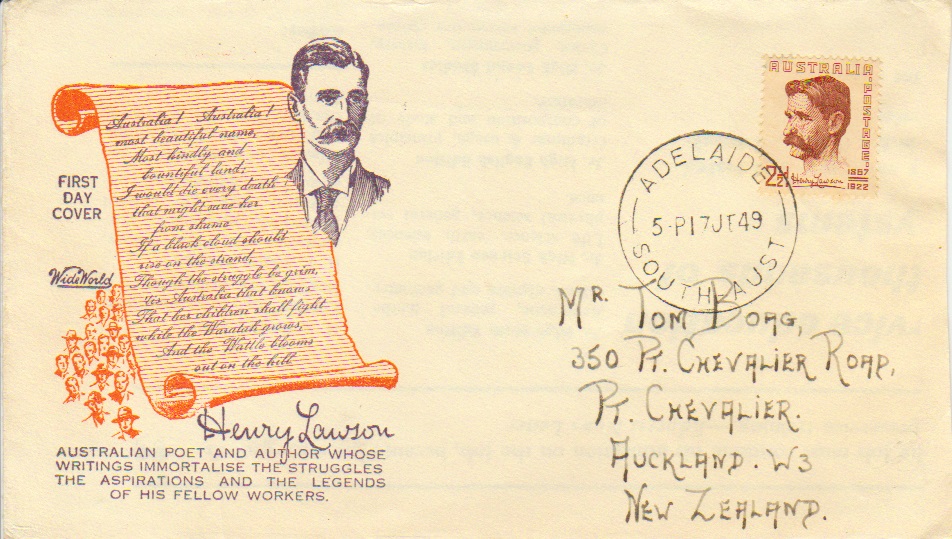 FIRST
DAY
COVER
WideWorld
Australia! Australia!
most beautiful name,
Most kindly and
bountiful land;
I would die every death
that might save her
from shame
If a black cloud should
rise on the strand;
Though the struggle be grim,
tis Australia that knows
That her children shall fight
while the Waratah grows,
And the Wattle blooms
out on the hill.
Henry Lawson
AUSTRALIAN POET AND AUTHOR WHOSE
WRITINGS IMMORTALISE THE STRUGGLES
THE ASPIRATIONS AND THE LEGENDS
OF HIS FELLOW WORKERS.
AUSTRALIA·POSTAGE·
2½D
Henry Lawson
1867
1922
ADELAIDE
5-P17JE49
SOUTH AUST
MR. TOM BORG,
350 PT. CHEVALIER ROAD,
PT. CHEVALIER.
AUCKLAND. W3
NEW ZEALAND.